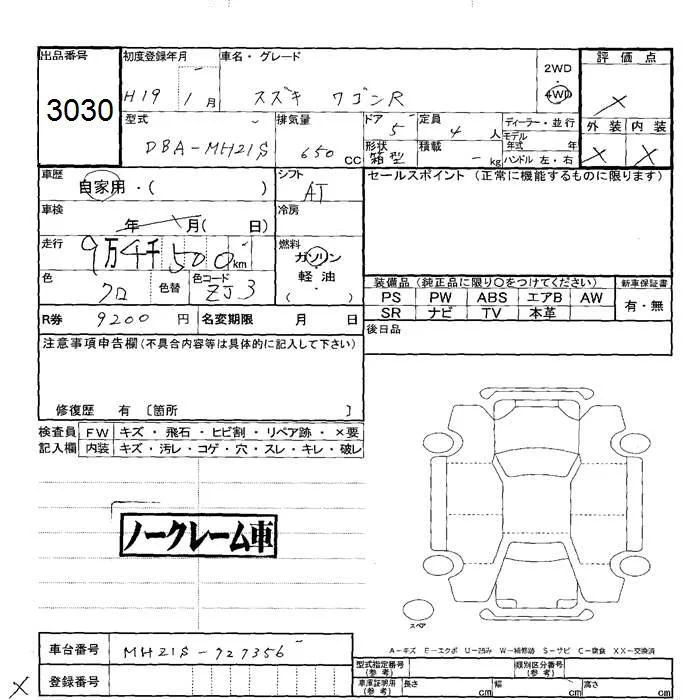 出品番号 初度登録年月 車名・グレード 2WD 評価点
3030 H19 1月 スズキ ワゴンR 4WD ×
型式 排気量 ドア 5 定員 4人 ディーラー・並行 外装 内装
DBA-MH21S 650 CC 形状 箱型 積載 - kg モデル年式 年 × ×
ハンドル 左・右
車歴 自家用・( ) シフト AT セールスポイント(正常に機能するものに限ります)
車検 年 月( 日) 冷房
走行 9万4千500km 燃料 ガソリン
軽油
( )
色 クロ 色替 色コード ZJ3 装備品(純正品に限り○をつけてください) 新車保証書
PS PW ABS エアB AW 有・無
R券 9200円 名変期限 月 日 SR ナビ TV 本革
注意事項申告欄(不具合内容等は具体的に記入して下さい) 後日品
修復歴 有 [箇所 ]
検査員 FW キズ・飛石・ヒビ割・リペア跡・×要
記入欄 内装 キズ・汚レ・コゲ・穴・スレ・キレ・破レ
ノークレーム車
スペア
A-キズ E-エクボ U-凹み W-補修跡 S-サビ C-腐食 XX-交換済
車台番号 MH21S-927356 型式指定番号(参考) 類別区分番号(参考)
× 登録番号 車庫証明用(参考) 長さ cm 幅 cm 高さ cm